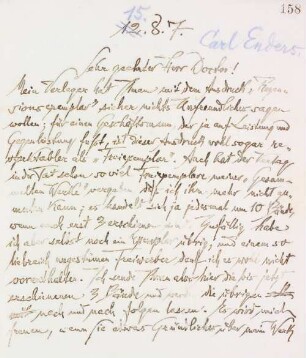 158
15.
12.8.7.
Carl Enders.
Sehr geehrter Herr Doctor!
Mein Verleger hat Ihnen mit dem Ausdruck "Rezen
sionsexemplar" sicher nichts Unfreundliches sagen
wollen; für einen Geschäftsmann, der ja auf Leistung und
Gegenleistung fußt, ist dieser Ausdruck wohl sogar re-
spektabler als "Freiexemplar". Auch hat der Verlag
in der Tat schon so viel Freiexemplare meiner "Gesam
melten Werke" vergeben daß ich ihm mehr nicht zu-
muten kann; es handelt sich ja jedesmal um 10 Bände,
wenn auch erst 3 erschienen sind. Zufällig habe
ich aber selbst noch ein Exemplar übrig, und einem so
liebreich
werde ich es nicht
vorenthalten. Ich sende Ihnen also hier die bis jetzt
erschienenen 3 Bände und werde die übrigen
nach und nach folgen lassen. Es wird mich
freuen, wenn Sie etwas Gründliches über mein Werk